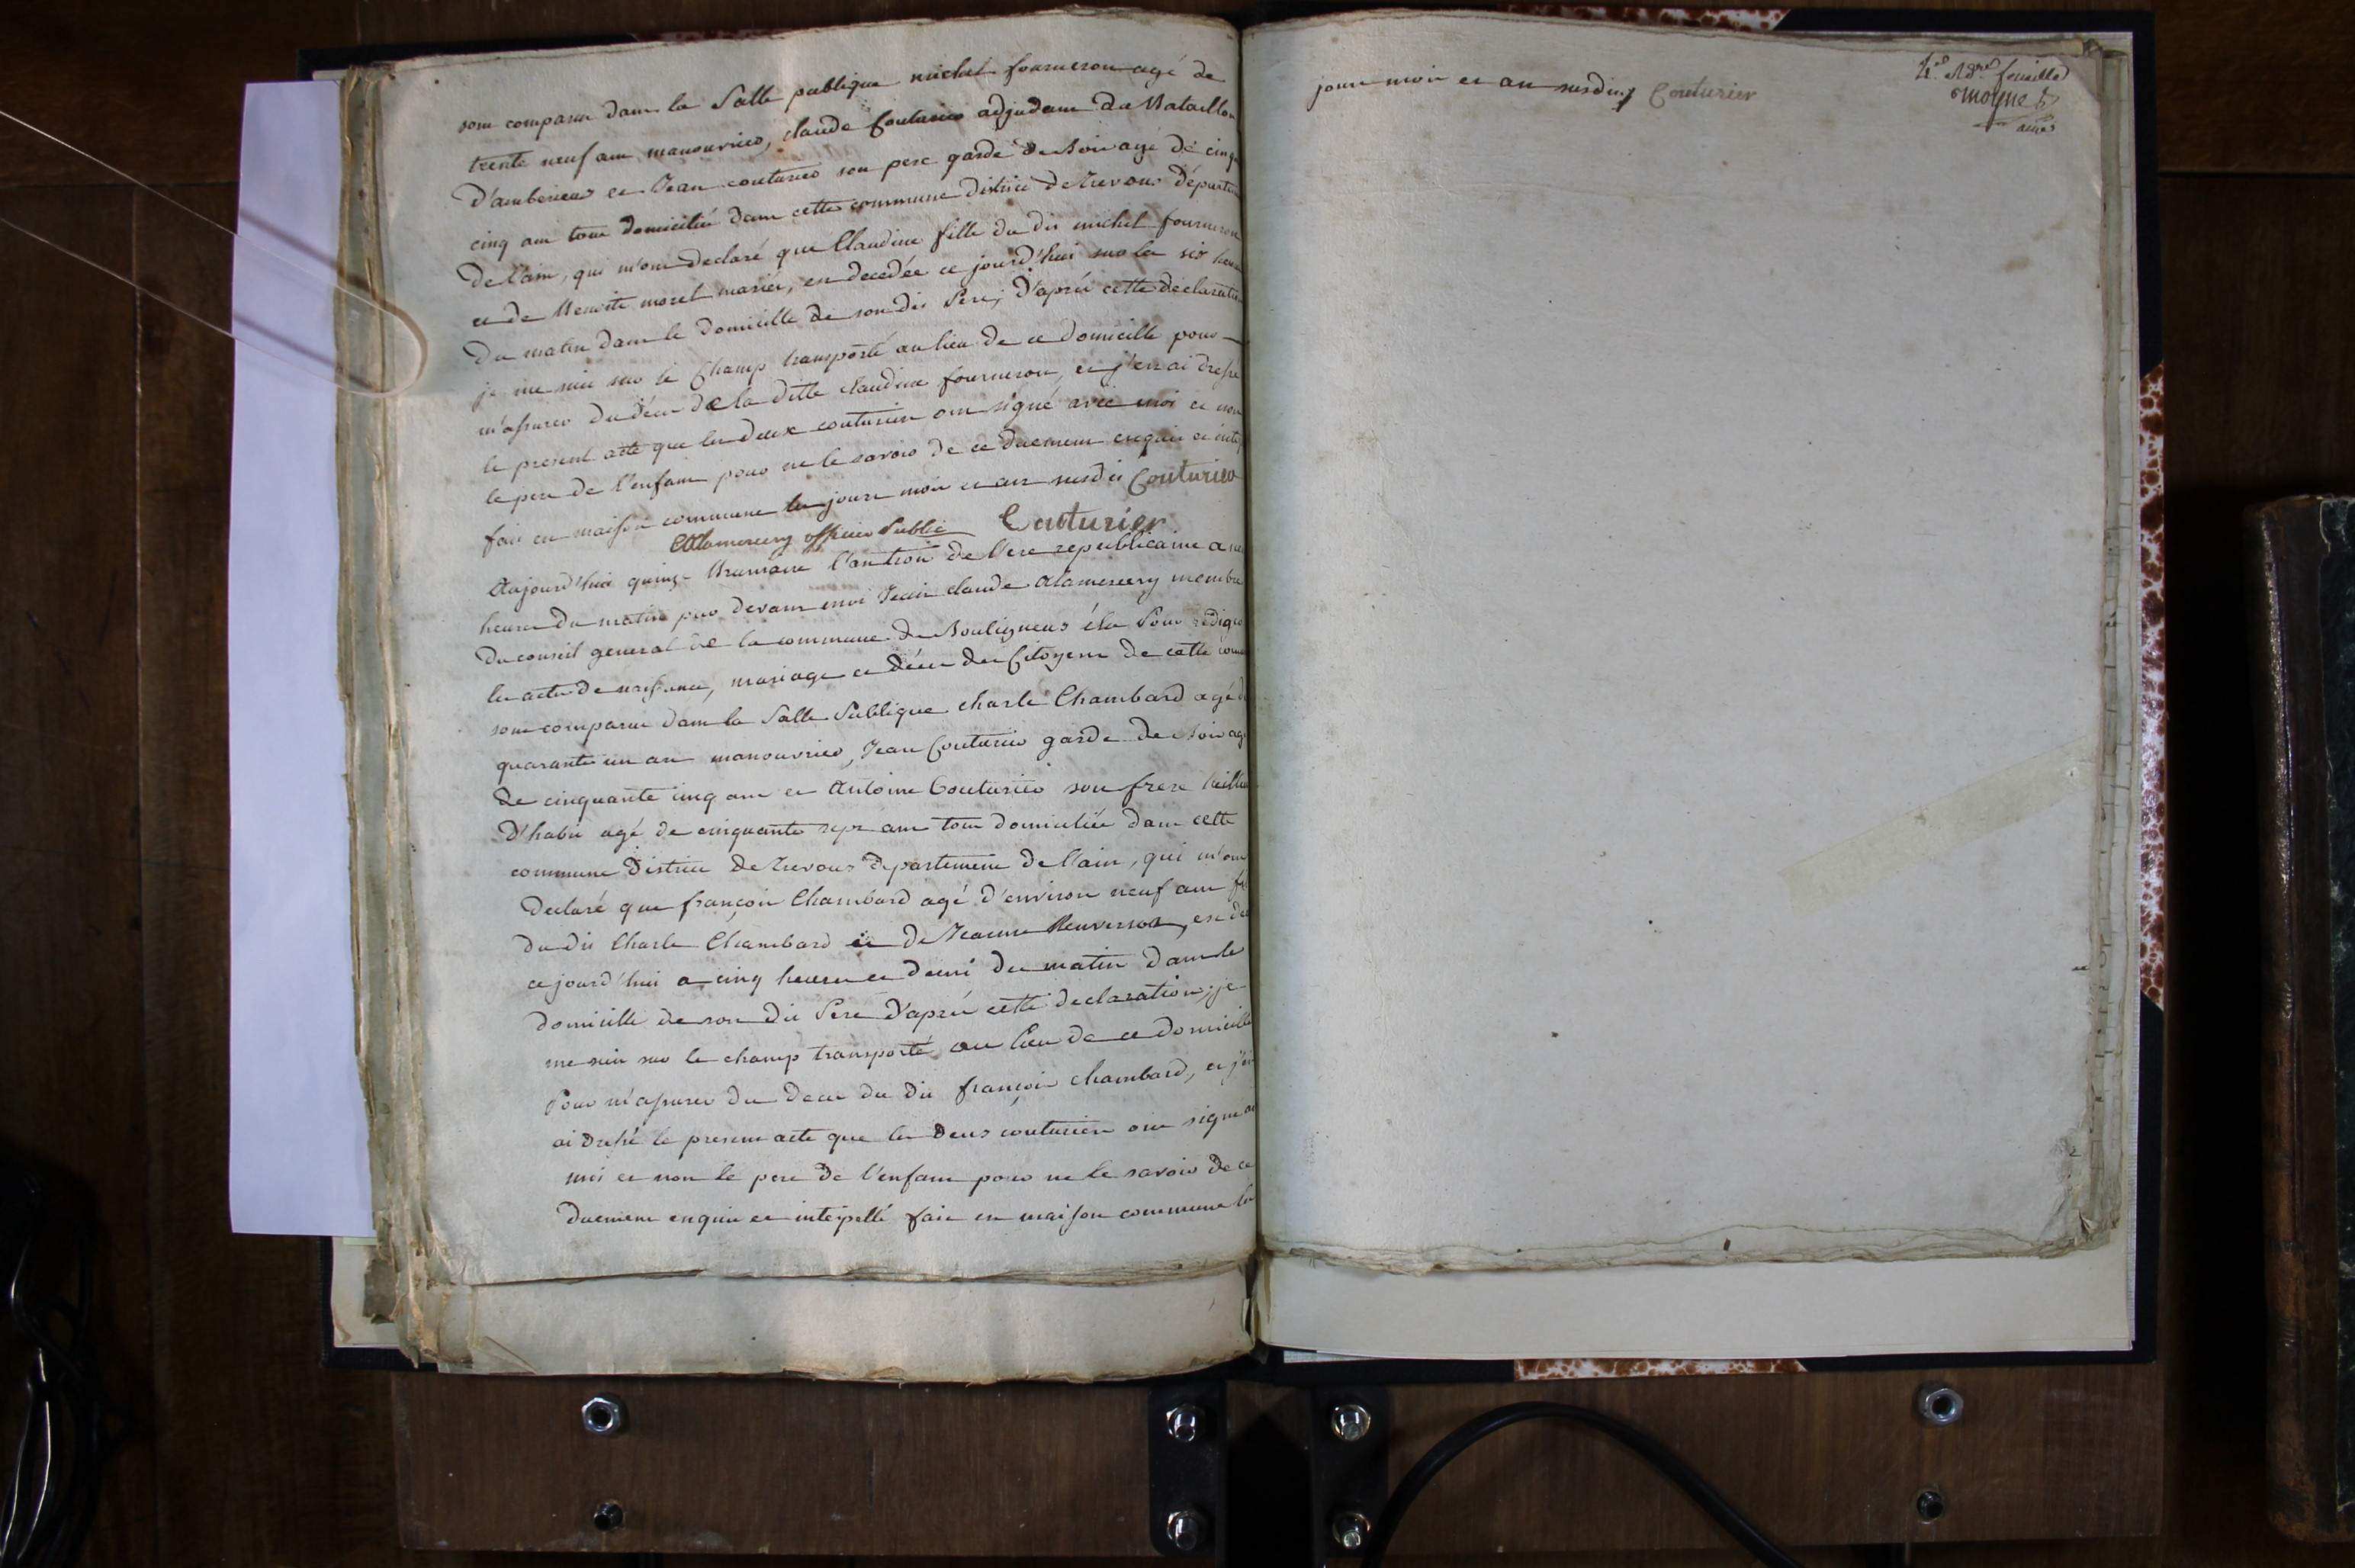 sont comparu dans la Salle publique michel fourneron agé de
trente neuf ans manouvrier, claude Couturier adjudant du Bataillon
D'amberieux et Jean couturier son pere garde de Bois agé de cinq
cinq ans tous domiciliés dans cette commune district de Trevoux départ
De l'ain, qui m'ont declaré que Claudine fille du dit michel fourneron
et de Benoite morel mariés, est decedée ce jourd'hui sur les six heur
Du matin dans le domicille de son dit Pere; D'après cette déclaration
je me suis sur le Champ transporté au lieu de ce domicille pour
m'assurer du décès de la ditte claudine fourneron, et j'en ai dressé
le present acte que les deux couturier ont signé avec moi et non
le pere de l'enfant pour ne le savoir de ce duement enquis et inte
fait en maison commune les jours mois et an susdits Couturier
Alamercery officier Public Couturier
Aujourd'hui quinze Brumaire l'an trois de l'ere republicaine a
heures du matin par devant moi Jean claude Alamercery membre
Du conseil general de la commune de Bouligneux élu Pour rediger
les actes de naissance, mariage et décès des Citoyens de cette com
sont comparu dans la Salle Publique charle Chambard agé de
quarante un an manouvrier, Jean Couturier garde de Bois agé
de cinquante cinq ans et Antoine Couturier son frere tailleu
D'habit agé de cinquante sept ans tous domiciliés dans cette
commune District de Trevoux département de l'ain, qui m'ont
Declaré que françois Chambard agé d'environ neuf ans fil
du dit Charle Chambard et de Jeanne, est de
ce jourd'hui a cinq heures et demi du matin dans le
domicille de son dit Pere D'après cette declaration, je
me suis sur le champ transporté au lieu de ce domicille
Pour m'assurer du deces du dit françois chambard, et j'en
ai dressé le present acte que les deux couturiers ont signé
moi et non le pere de l'enfant pour ne le savoir de ce
duement enquis et interpellé fait en maison commune les
jours mois et an susdits Couturier
feuille
moyne